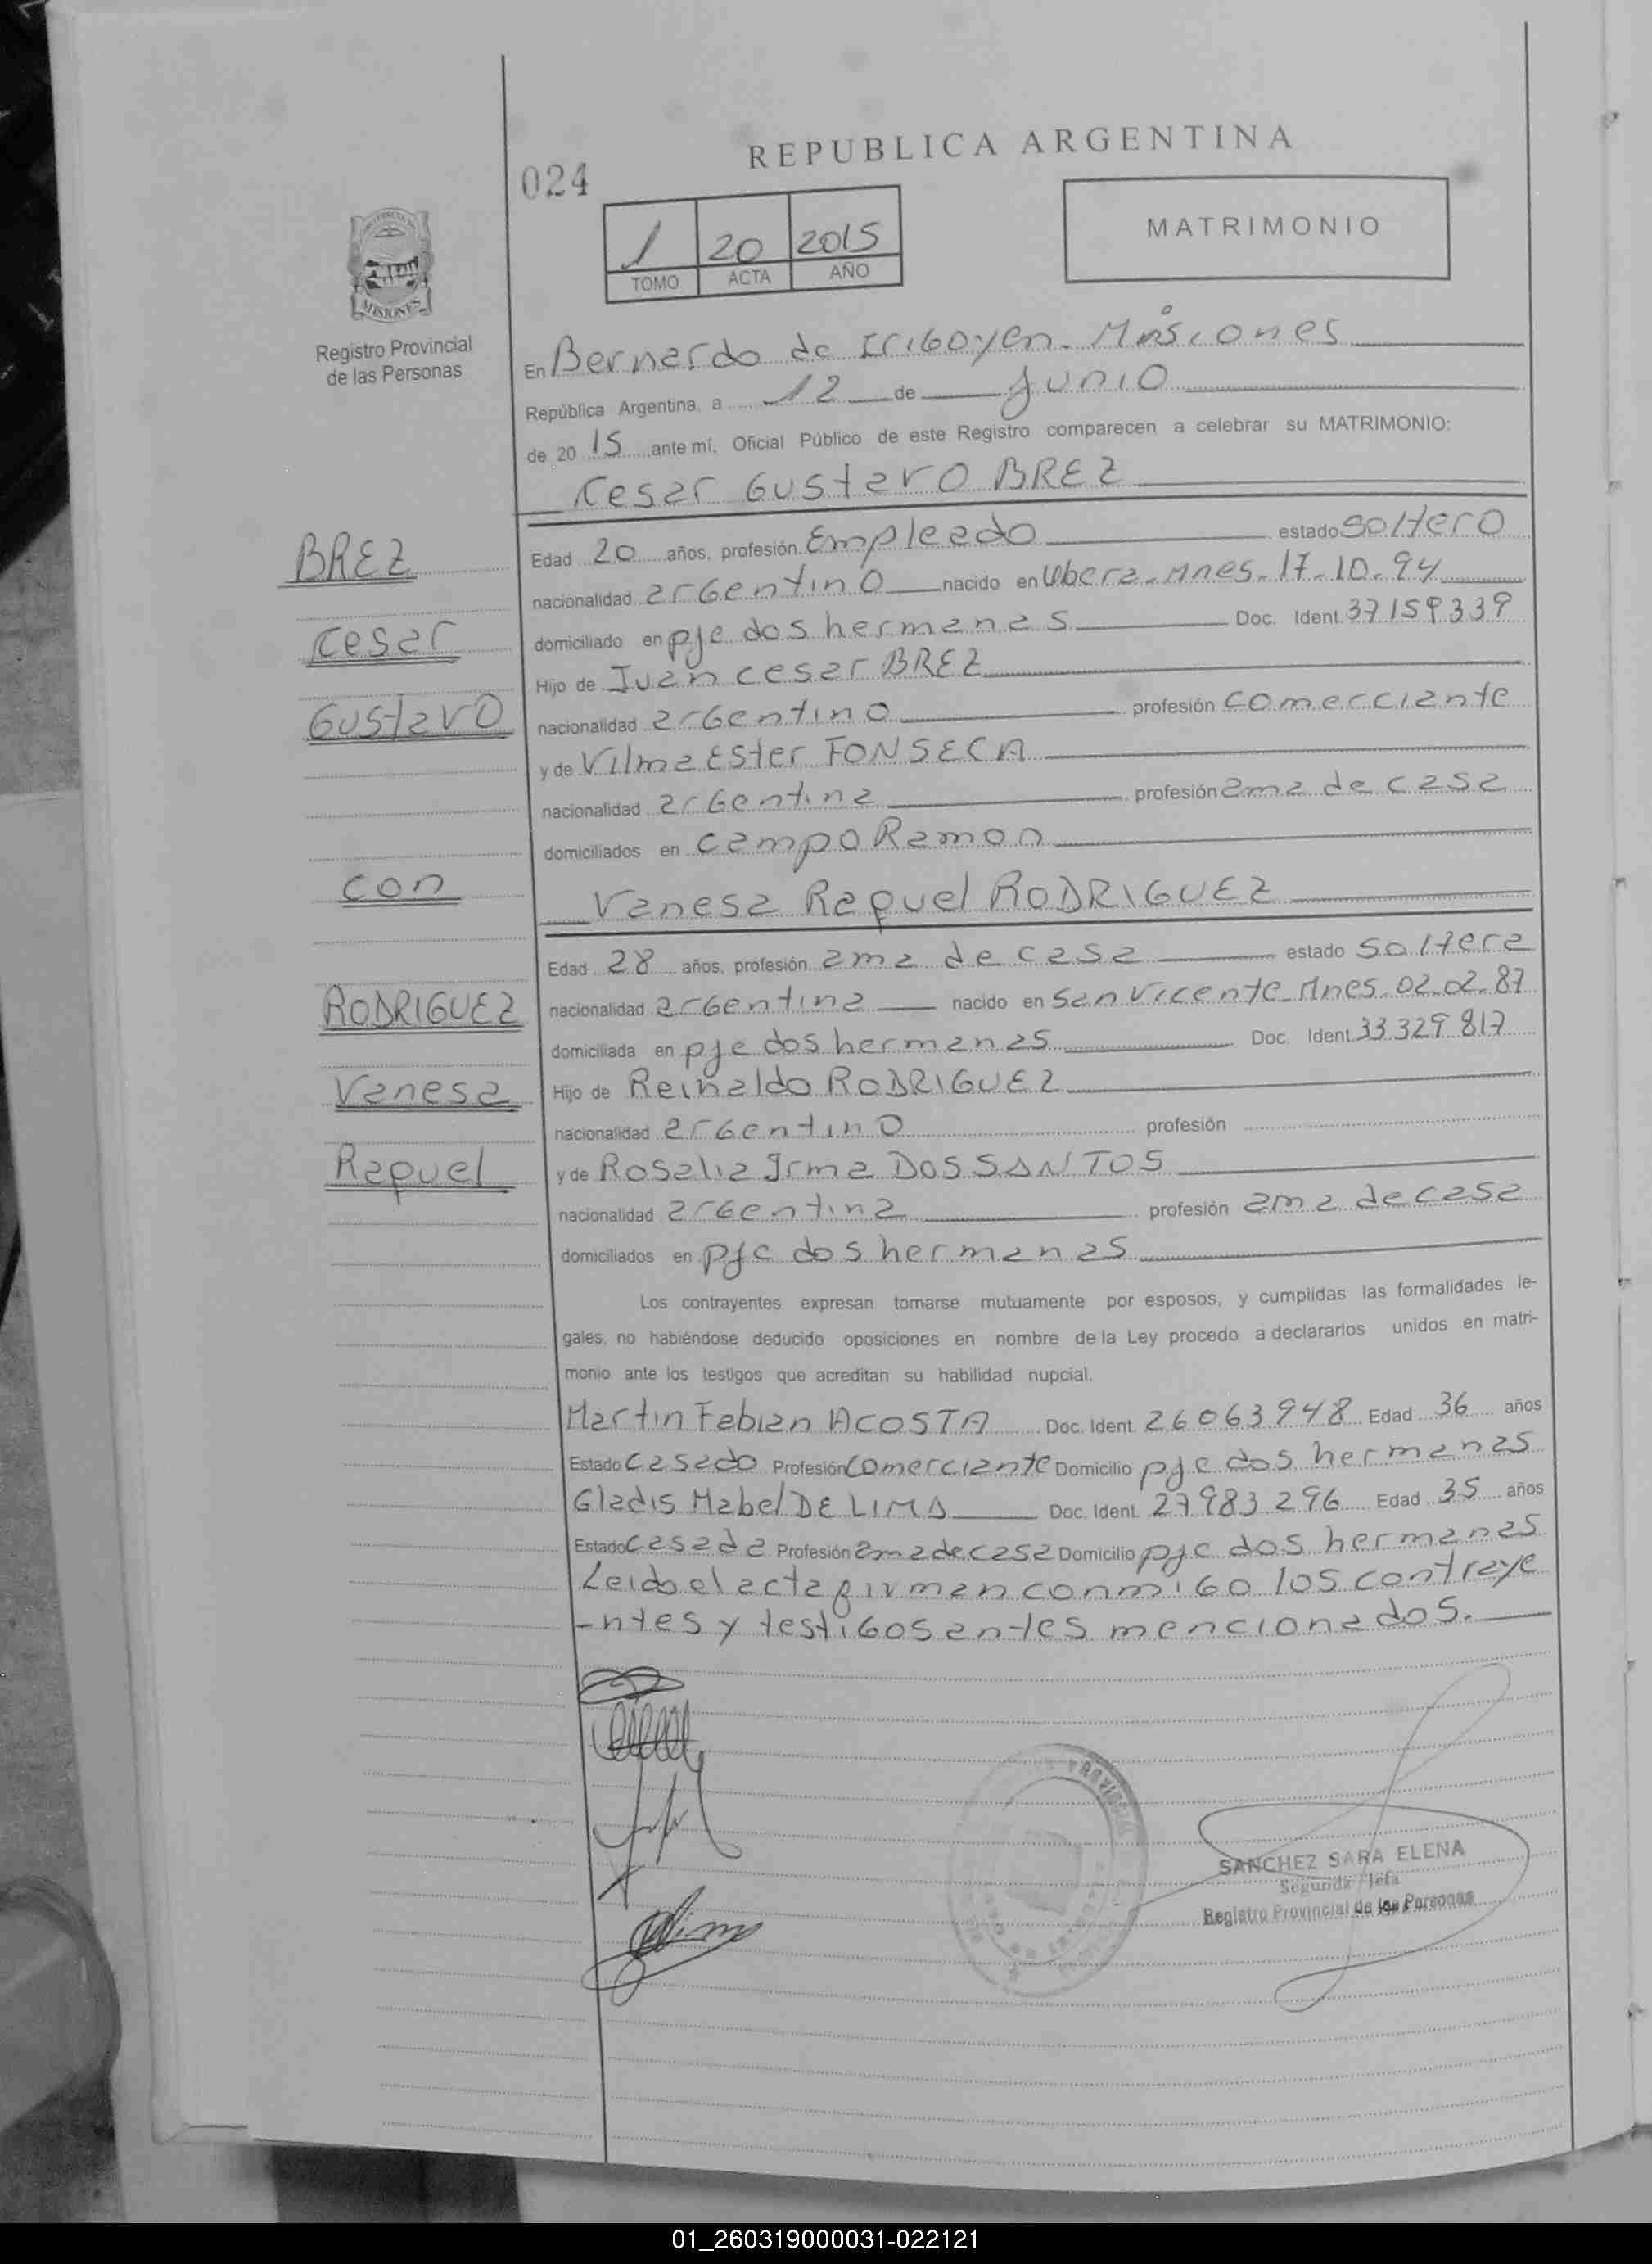 REPUBLICA ARGENTINA
024
1 20 2015
TOMO ACTA AÑO
MATRIMONIO
MISIONES
Registro Provincial
de las Personas
En Bernardo de Irigoyen - Misiones
República Argentina, a 12 de Junio
de 2015 ante mí, Oficial Público de este Registro comparecen a celebrar su MATRIMONIO:
Cesar Gustavo BREZ
BREZ
Cesar
Gustavo
con
RODRIGUEZ
Vanesa
Raquel
Edad 20 años, profesión Empleado estado Soltero
nacionalidad argentino nacido en Obera - Mnes - 17-10-94
domiciliado en pje dos hermanas Doc. Ident. 37159339
Hijo de Juan Cesar BREZ
nacionalidad argentino profesión comerciante
y de Vilma Ester FONSECA
nacionalidad argentina profesión ama de casa
domiciliados en campo Ramon
Vanesa Raquel RODRIGUEZ
Edad 28 años, profesión ama de casa estado Soltera
nacionalidad argentina nacido en San Vicente - Mnes - 02-02-87
domiciliada en pje dos hermanas Doc. Ident. 33.329.817
Hijo de Reinaldo RODRIGUEZ
nacionalidad argentino profesión
y de Rosalia Irma DOS SANTOS
nacionalidad argentina profesión ama de casa
domiciliados en pje dos hermanas
Los contrayentes expresan tomarse mutuamente por esposos, y cumplidas las formalidades le-
gales, no habiéndose deducido oposiciones en nombre de la Ley procedo a declararlos unidos en matri-
monio ante los testigos que acreditan su habilidad nupcial.
Martin Fabian ACOSTA Doc. Ident. 26063948 Edad 36 años
Estado Casado Profesión Comerciante Domicilio pje dos hermanas
Gladis Mabel DE LIMA Doc. Ident. 27983296 Edad 35 años
Estado Casada Profesión ama de casa Domicilio pje dos hermanas
Leido el acta firman conmigo los contraye
-ntes y testigos antes mencionados.
PROVINCIAL
SANCHEZ SARA ELENA
Segunda Jefa
Registro Provincial de las Personas
01_260319000031-022121